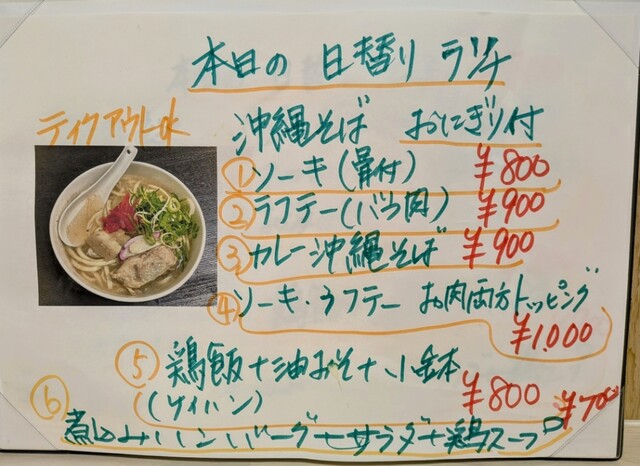 本日の 日替り ランチ
テイクアウトok
沖縄そば おにぎり付
①ソーキ(骨付) ¥800
②ラフテー(バラ肉) ¥900
③カレー沖縄そば ¥900
④ソーキ・ラフテー お肉両方トッピング
¥1,000
⑤鶏飯+油みそ+小鉢
(ケイハン) ¥800
⑥ ¥700
煮込みハンバーグ+サラダ+鶏スープ